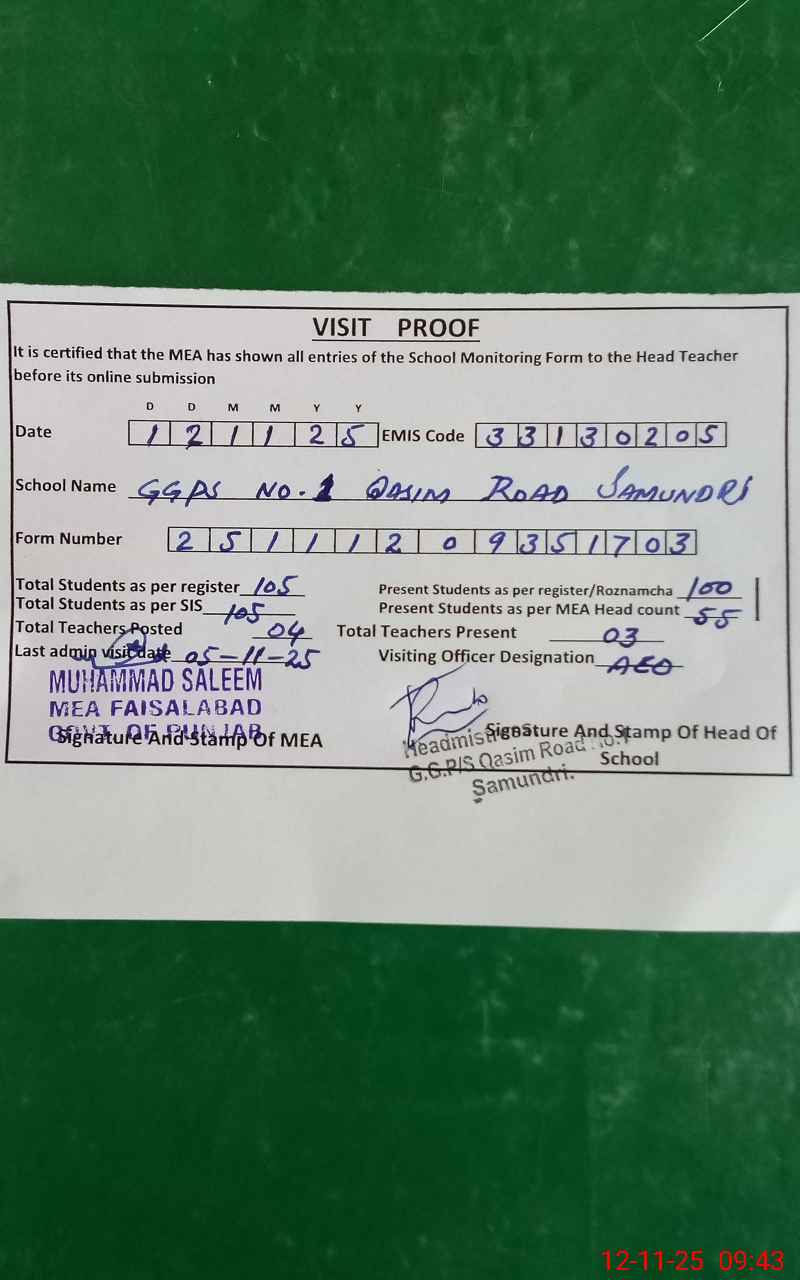 VISIT PROOF
It is certified that the MEA has shown all entries of the School Monitoring Form to the Head Teacher
before its online submission
D D M M Y Y
Date 1 2 1 1 2 5 EMIS Code 3 3 1 3 0 2 0 5
School Name GGPS NO.1 QASIM ROAD SAMUNDRI
Form Number 2 5 1 1 1 2 0 9 3 5 1 7 0 3
Total Students as per register 105 Present Students as per register/Roznamcha 100
Total Students as per SIS 105 Present Students as per MEA Head count 55
Total Teachers Posted 04 Total Teachers Present 03
Last admin visit date 05-11-25 Visiting Officer Designation AEO
MUHAMMAD SALEEM
MEA FAISALABAD
GOVT. OF PUNJAB
Signature And Stamp Of MEA
Signature And Stamp Of Head Of
School
Headmistress
G.G.P/S Qasim Road No.1
Samundri.
12-11-25 09:43